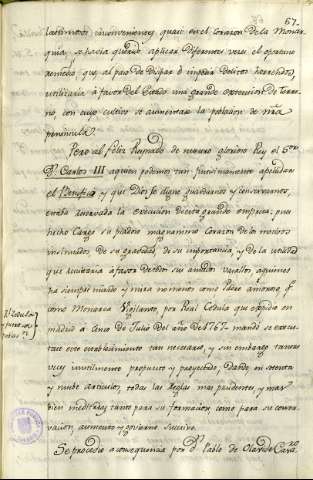 67.
lastimosos inconvenientes, quasi en el corazon de la Monar-
quia, se havia querido aplicar diferentes veces el oportuno
remedio que al paso de disipar è impedir delitos horrendos,
utilizaria à favor del Estado una grande extension de Terre-
no, con cuyo cultivo se aumentase la poblacion de nra.
peninsula.
Pero al feliz Reynado de nuestro glorioso Rey el Señor
Dn. Carlos III aquien podemos tan justamente apellidar
el Benefico y que Dios se digne guardarnos y conservarnos,
estaba reservada la execucion de esta grande empresa; pues
hecho Cargo su piadoso magnanimo Corazon de los motivos
inclinados de su gravedad, de su importancia, y de la utilidad
que resultaria à favor de todos sus amados Vasallos, aquienes
ha siempre mirado y mira no menos como Padre amoroso, q.
como Monarca Vigilante, por Real Cedula que expidio en
Madrid à Cinco de Julio del año de 1767. mandò se execu-
tase este establecimiento tan necesario, y sin embargo tantas
veces inutilmente propuesto y proyectado, Dando en setenta
y nueve articulos, todas las Reglas mas prudentes, y mas
bien meditadas tanto para su formacion como para su conser-
vacion, aumento y govierno sucesivo.
Se procedio a consequencia por Dn. Pablo de Olavide Cava.ro
Rl. Cedula